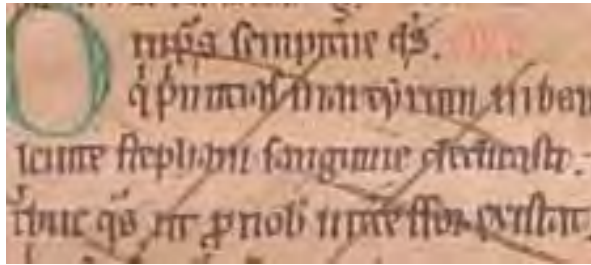 O mp̄s sempit̾ne d̄s.
qͥ pͥmitias martyrum in bea
leuite stephani sanguine dedicasti.
tͥbue q̄s ut ꝓ nob̾ int̾cessor existat